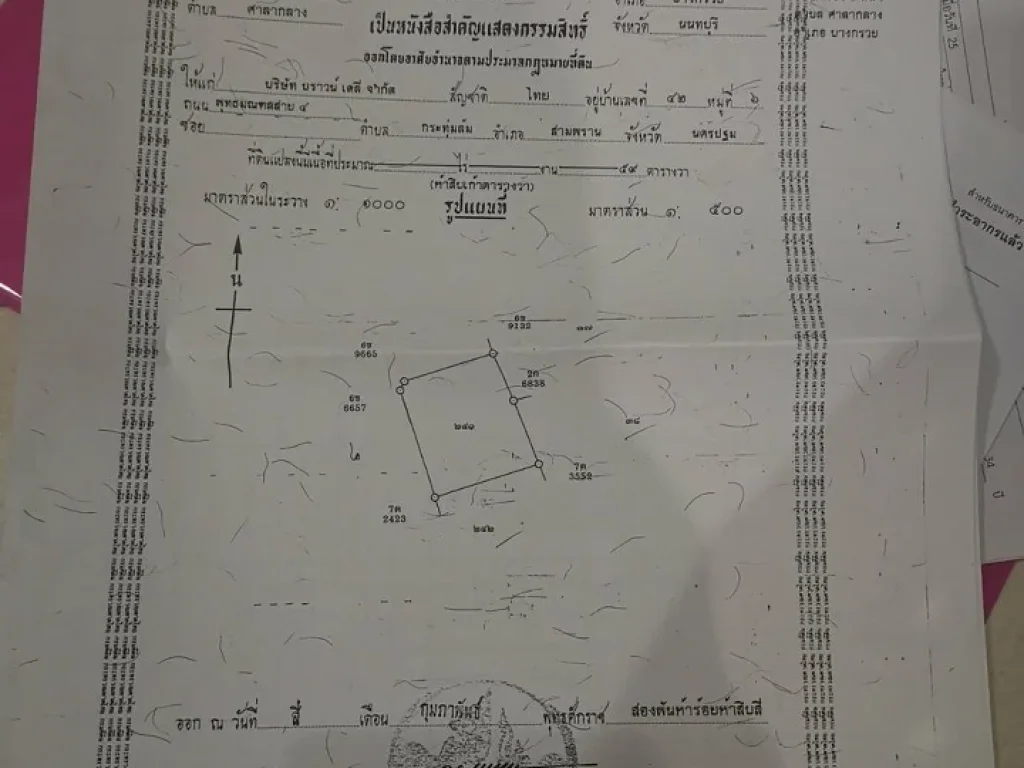 ตำบล ศาลากลาง
อำเภอ บางกรวย
เป็นหนังสือสำคัญแสดงกรรมสิทธิ์
จังหวัด นนทบุรี
ตำบล ศาลากลาง
อำเภอ บางกรวย
ออกโดยอาศัยอำนาจตามประมวลกฎหมายที่ดิน
ให้แก่ บริษัท บราวน์ เดลี จำกัด สัญชาติ ไทย อยู่บ้านเลขที่ ๔๒ หมู่ที่ ๖
ถนน พุทธมณฑลสาย ๔
ซอย ตำบล กระทุ่มล้ม อำเภอ สามพราน จังหวัด นครปฐม
ที่ดินแปลงนี้มีเนื้อที่ประมาณ ไร่ งาน ๕๙ ตารางวา
(ห้าสิบเก้าตารางวา)
มาตราส่วนในระวาง ๑: ๑๐๐๐ รูปแผนที่ มาตราส่วน ๑: ๕๐๐
น
6ข
9132
๓๗
6ข
9665
2ก
6838
6ข
6657
๒๔๑
๓๘
7ค
3552
7ค
2423
๒๔๒
ออก ณ วันที่ สี่ เดือน กุมภาพันธ์ พุทธศักราช สองพันห้าร้อยห้าสิบสี่
สำหรับธนาคาร